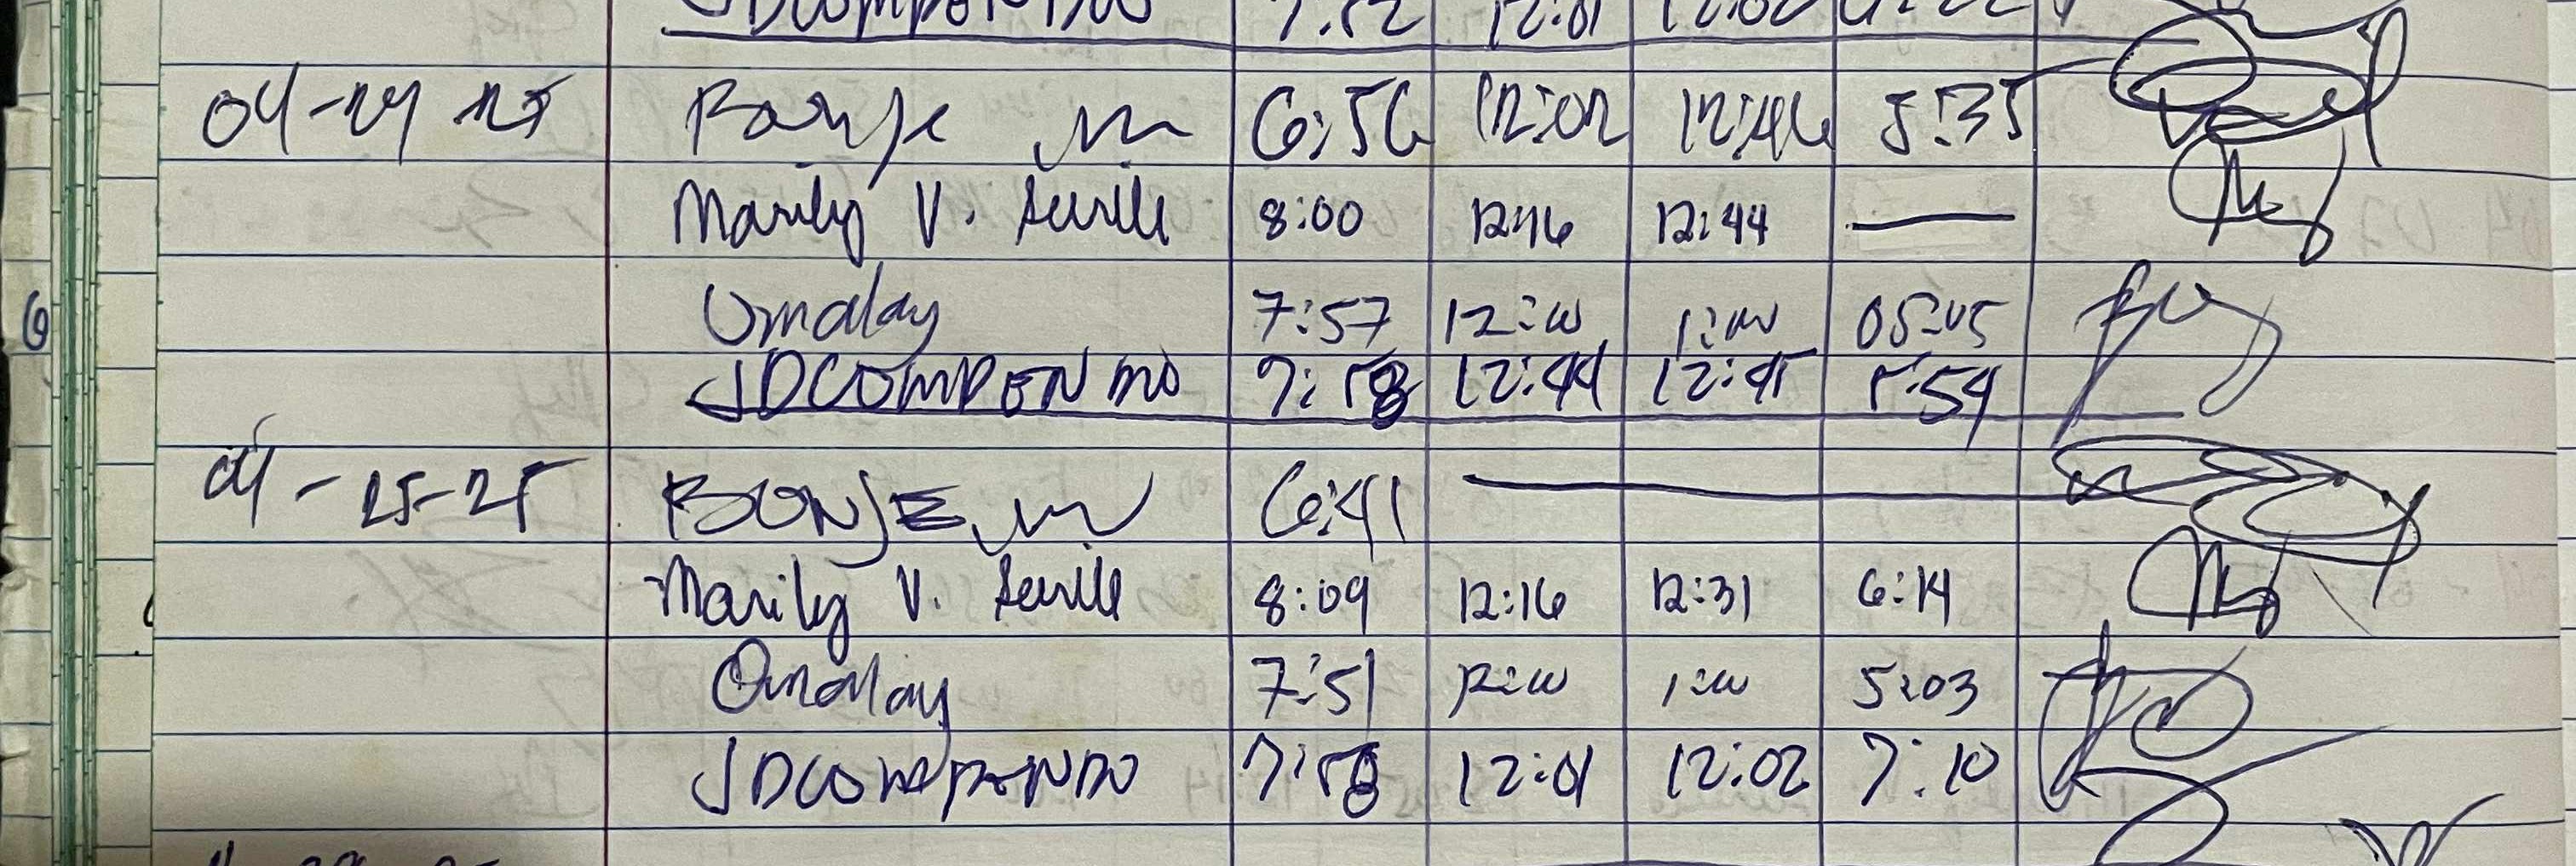 JDCOMPENDO 7:52 12:01 12:02
04-24-25 6:56 12:02 12:46 5:35
Marily V. Seville 8:00 12:16 12:44 —
Umalay 7:57 12:00 1:00 05:05
JDCOMPENDO 7:58 12:44 12:45 5:54
04-25-25 BONJE 6:41 —
Marily V. Seville 8:09 12:16 12:31 6:14
Umalay 7:51 12:00 1:00 5:03
JDCOMPENDO 7:58 12:01 12:02 7:10